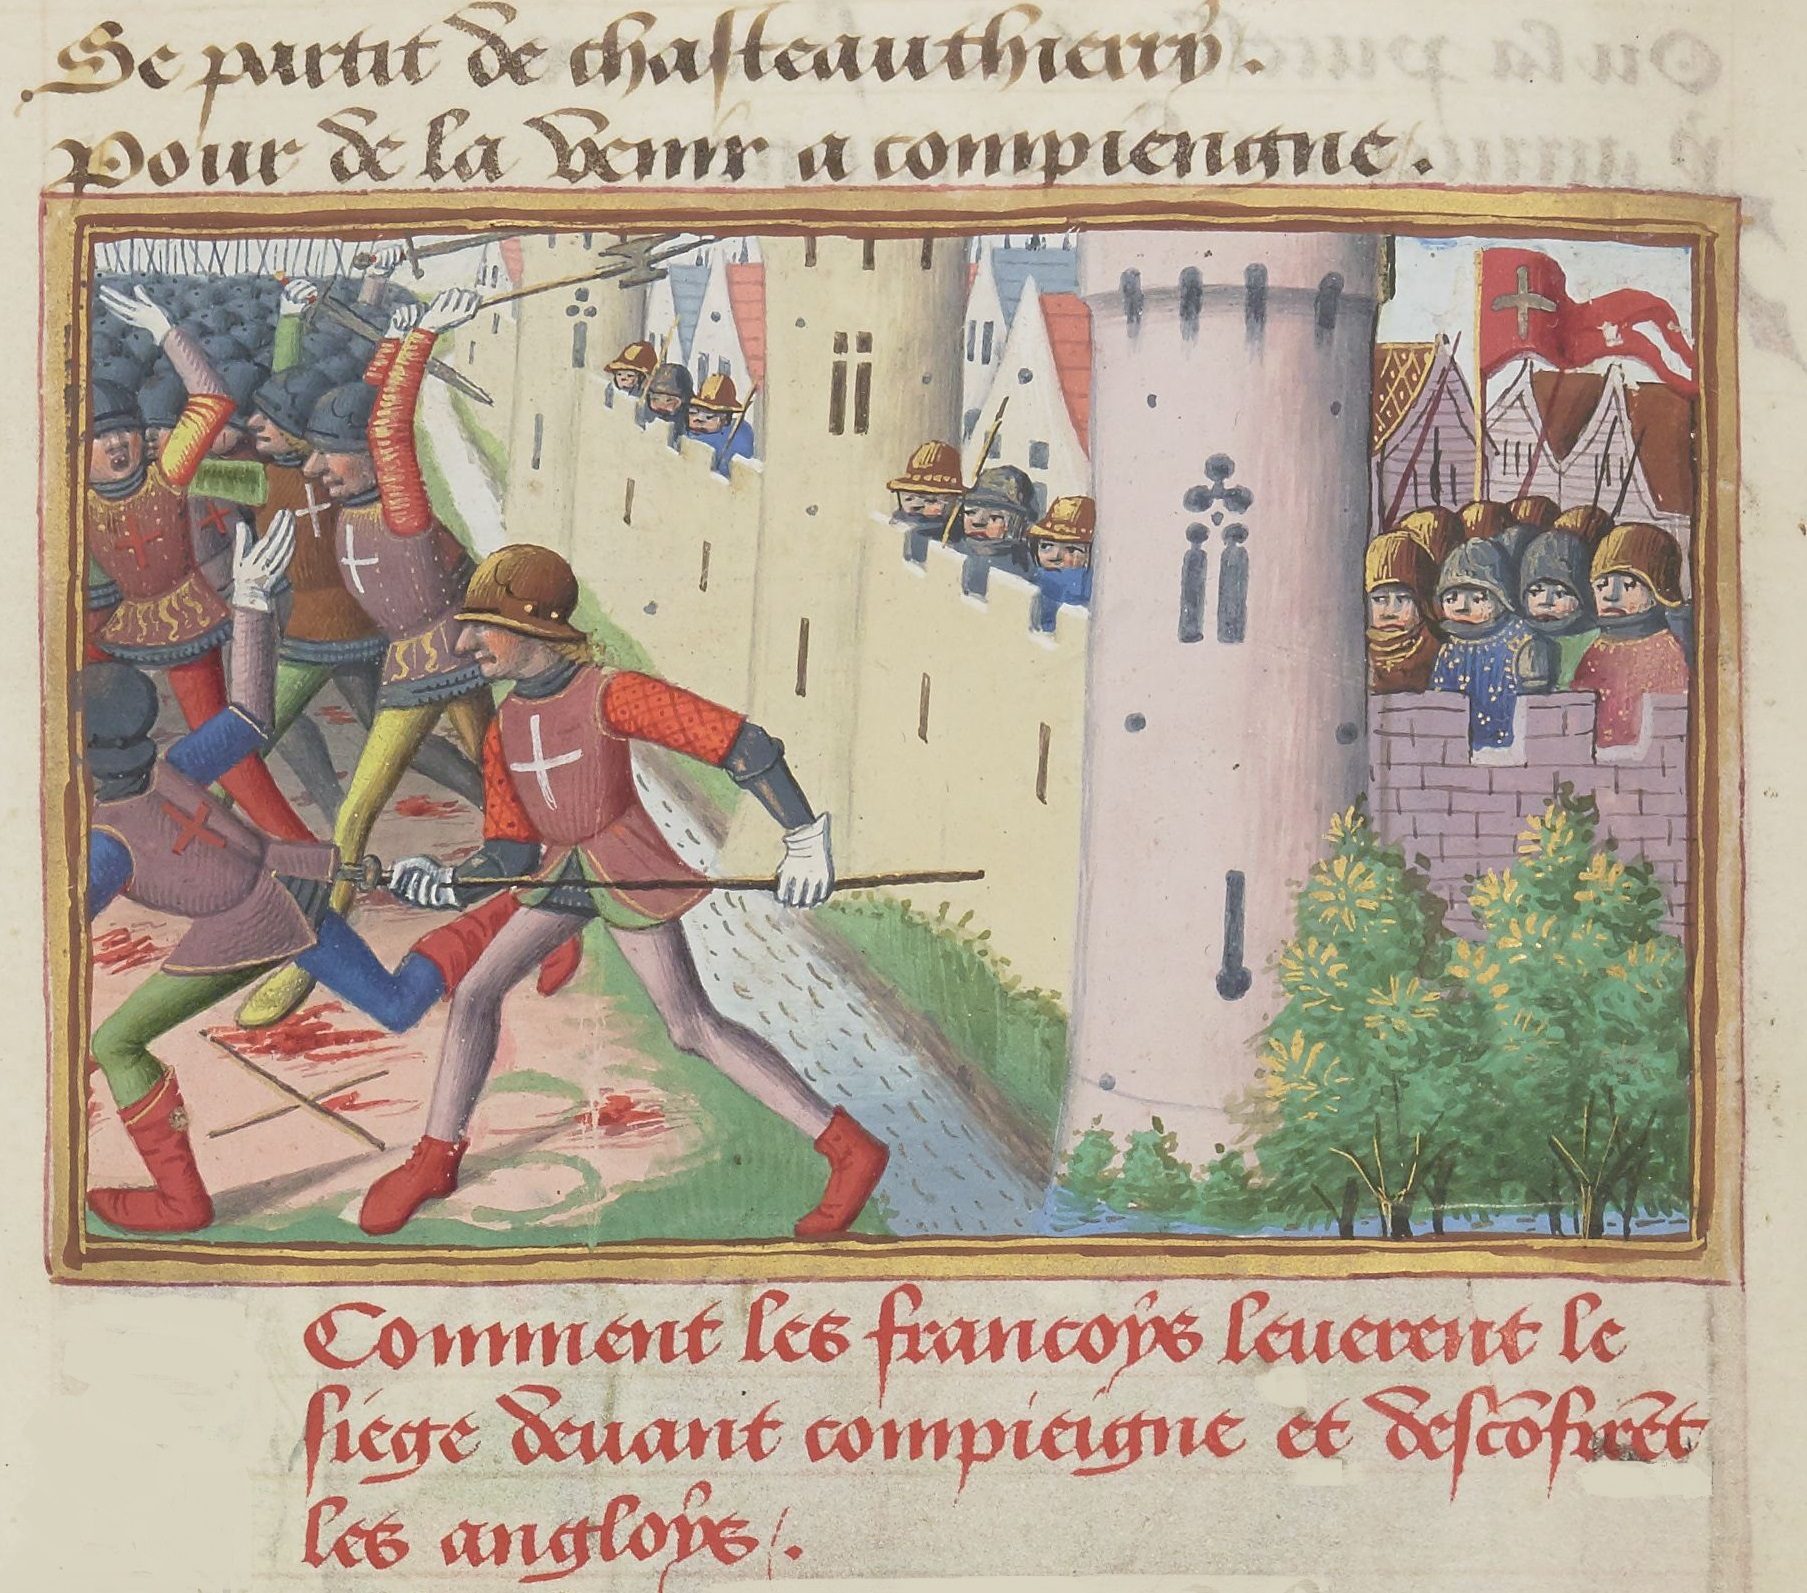 Se partit de chasteauthierry.
pour de la venir a compiengne.
Comment les francoys leuerent le
siege deuant compieigne et descõfirẽt
les angloys /.